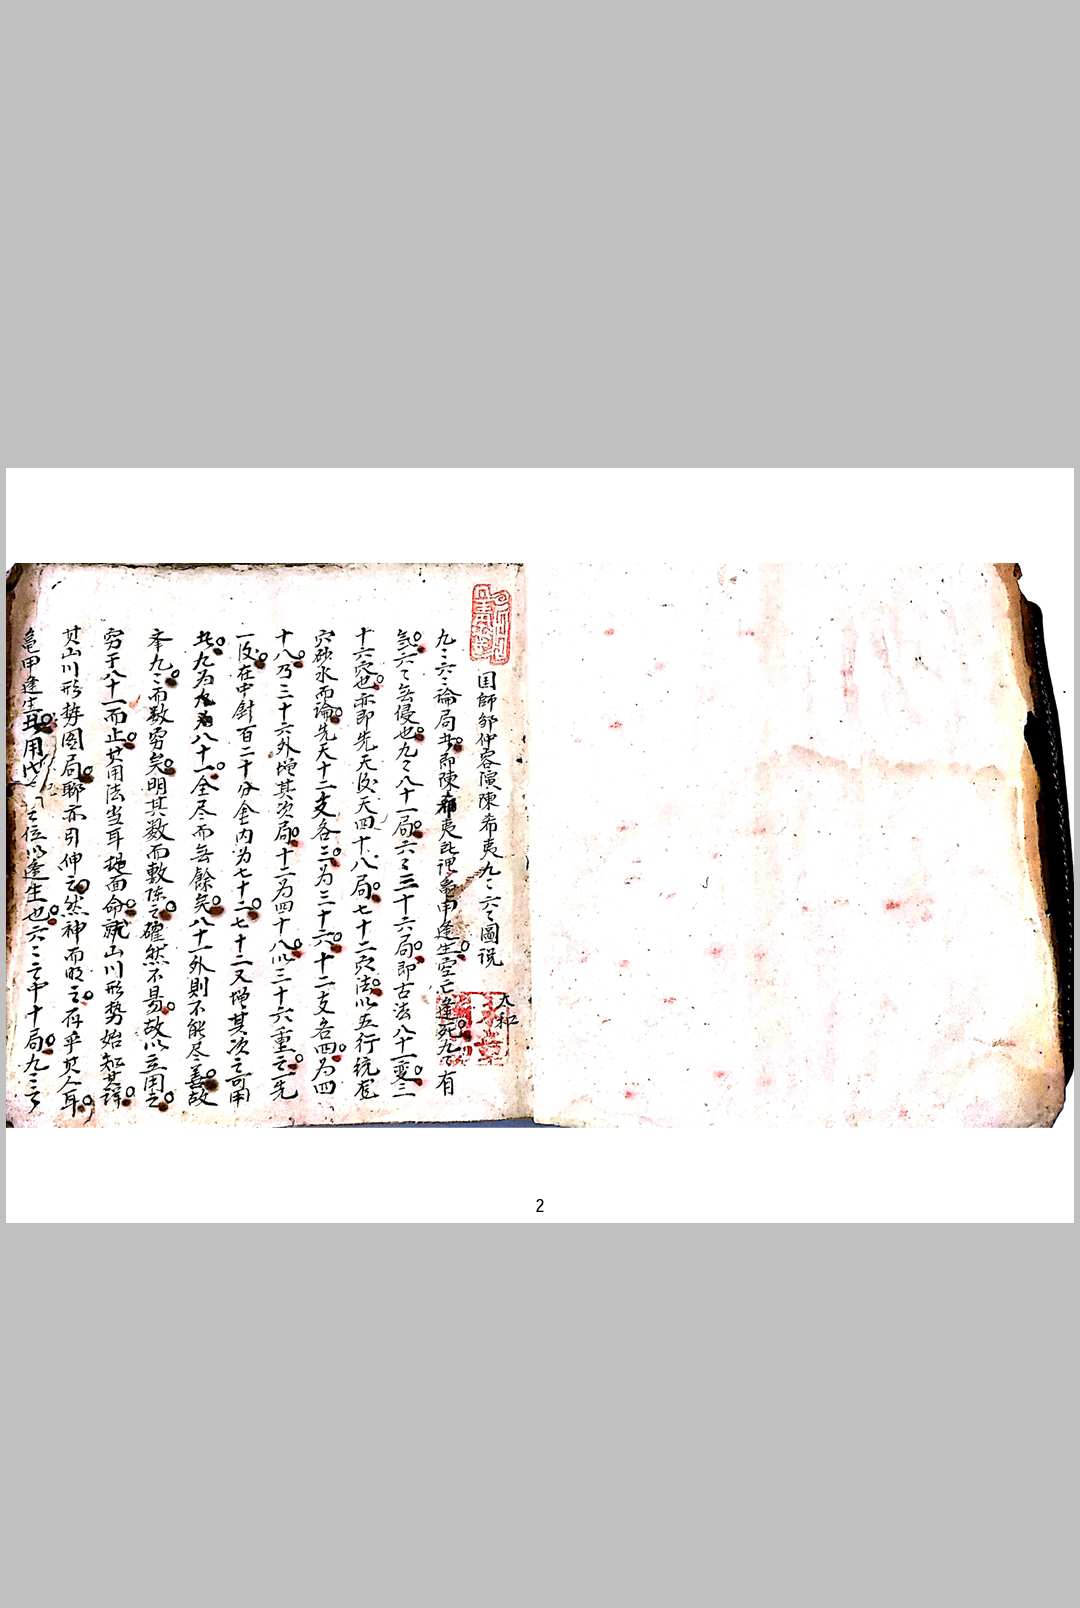 国師邹仲容演陳希夷九〻六〻圖説
太和
九〻六〻論局此即陳希夷此理龟甲逢生空亡逢死九〻有
氣六〻無侵也九〻八十一局六〻三十六局即古法八十一变三
十六穴也亦即先天後天四十八局七十二穴法以五行統
穴砂水而論先天十二支各三为三十六十二支各四为四
十八乃三十六外增其次局十二为四十八以三十六重之一先
一後在中針百二十分金内为七十二七十二又增其次之可用
此九为九為八十一全尽而無餘矣八十一外則不能尽善故
本九〻而数穷矣明其数而敷陈之確然不易故以立用之
穷于八十一而止其用法当耳提面命就山川形勢始知其詳
其山川形勢图局聊亦引伸之然神而明之存乎其人耳
龟甲逢生丑用戊 之位以逢生也六〻之中十局九〻之
2